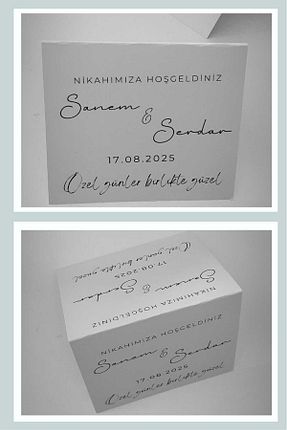 NİKAHIMIZA HOŞGELDİNİZ
Sanem
&
Serdar
17.08.2025
Özel günler birlikte güzel
Özel günler birlikte güzel
17.08.2025
Sanem & Serdar
NİKAHIMIZA HOŞGELDİNİZ
NİKAHIMIZA HOŞGELDİNİZ
Sanem & Serdar
17.08.2025
Özel günler birlikte güzel